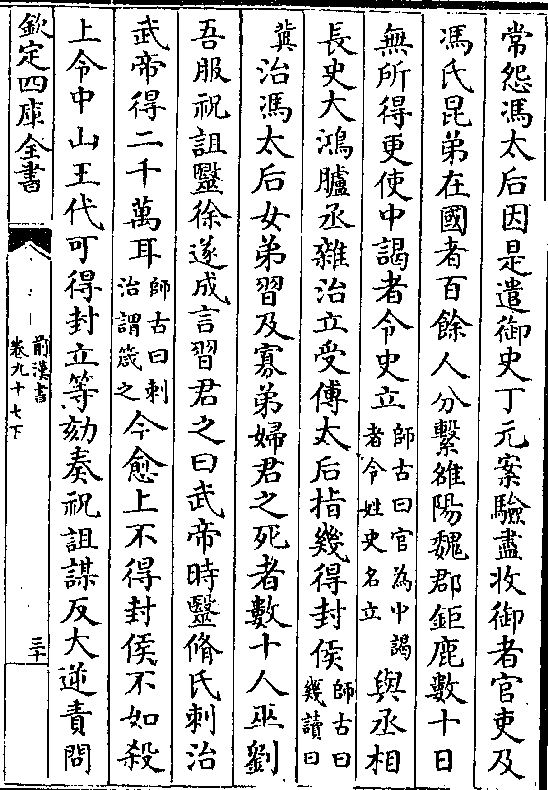 常怨馮太后因是遣御史丁元案驗盡收御者官吏及
馮氏昆弟在國者百餘人分繫雒陽魏郡鉅鹿數十日
無所得更使中謁者令史立師古曰官為中謁者令姓史名立與丞相
長史大鴻臚丞雜治立受傅太后指幾得封侯師古曰幾讀曰
冀治馮太后女弟習及寡弟婦君之死者數十人巫劉
吾服祝詛毉徐遂成言習君之曰武帝時毉脩氏刺治
武帝得二千萬耳師古曰刺治謂箴之今愈上不得封侯不如殺
上令中山王代可得封立等劾奏祝詛謀反大逆責問
欽定四庫全書
前漢書
卷九十七下
三十